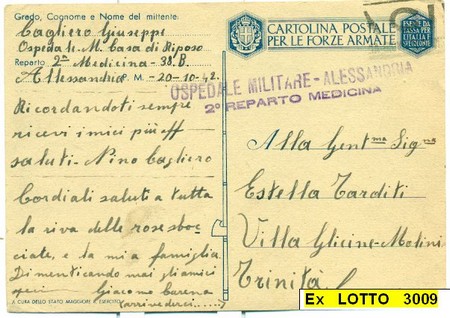 Grado, Cognome e Nome del mittente:
Cagliero Giuseppi
Ospeda le M. Casa di Riposo
Reparto 2ª Medicina - 38. B.
Alessandria P. M. - 20-10-42
Ricordandoti sempre
ricevi i miei più aff
saluti - Nino Cagliero
Cordiali saluti a tutta
la riva delle rose sboc-
ciate, e la mia famiglia.
Dimenticando mai gli amici
Giacomo Carena
(arrivederci.....)
A CURA DELLO STATO MAGGIORE R. ESERCITO
CARTOLINA POSTALE
PER LE FORZE ARMATE
ESENTE DA
TASSA PER
L'ITALIA
SPEDIZIONE
OSPEDALE MILITARE - ALESSANDRIA
2° REPARTO MEDICINA
Alla Gent ma Sig na
Estella Tarditi
Villa Glicine - Molini
Trinità
Ex LOTTO 3009